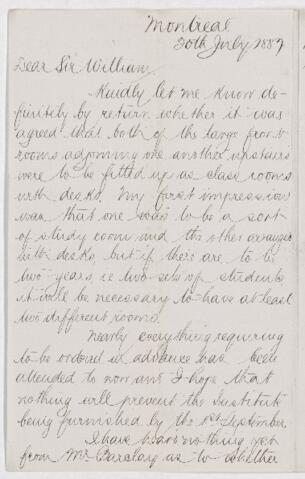 Montreal
30th July 1889
Dear Sir William,
Kindly let me know de-
finitely by return whether it was
agreed that both of the large front
rooms adjoining one another upstairs
were to be fitted up as class rooms
with desks. My first impression
was that one was to be a sort
of study room and the other arranged
with desks, but if there are to be
two years, i.e. two sets of students
it will be necessary to have at least
two different rooms.
Nearly everything requiring
to be ordered in advance has been
attended to now and I hope that
nothing will prevent the Institute
being furnished by the 1st September.
I have heard nothing yet
from Mr Barclay as to whether